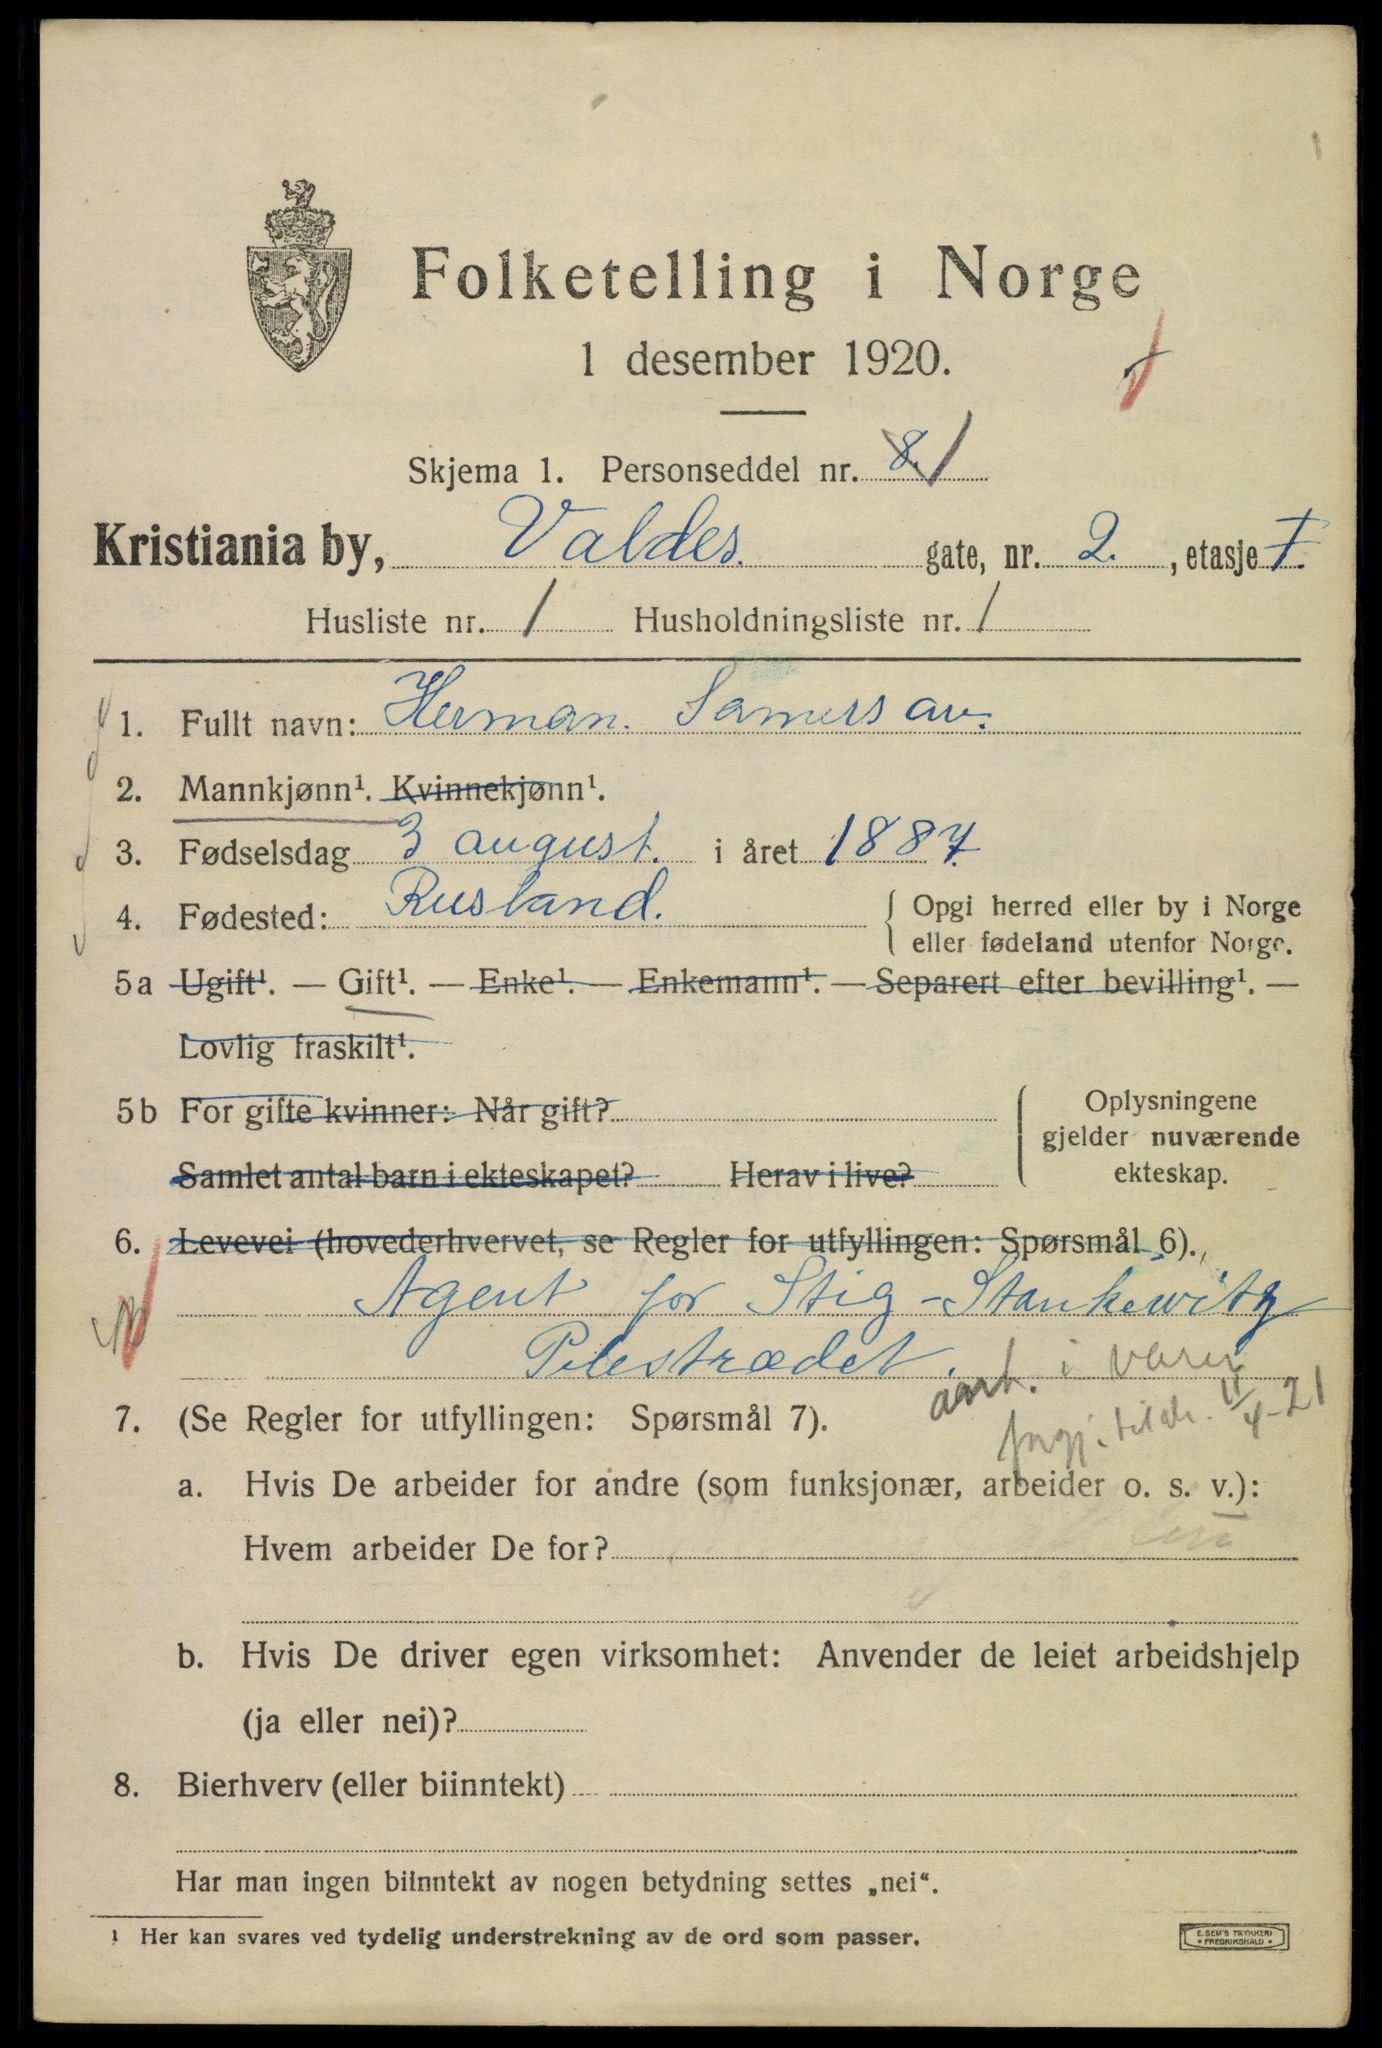 Folketelling i Norge
1 desember 1920.
Skjema 1. Personseddel nr. 8. 1
Kristiania by, Valdes. gate, nr. 2. , etasje I.
Husliste nr. 1 Husholdningsliste nr. 1
1. Fullt navn: Herman.
2. Mannkjønn¹. Kvinnekjønn¹.
3. Fødselsdag 3 august. i året 1887.
4. Fødested: Rusland. Opgi herred eller by i Norge
eller fødeland utenfor Norge.
5a Ugift¹. — Gift¹. — Enke¹. — Enkemann¹. — Separert efter bevilling¹. —
Lovlig fraskilt¹.
5b For gifte kvinner: Når gift? Oplysningene
gjelder nuværende
Samlet antal barn i ekteskapet? Herav i live? ekteskap.
6. Levevei (hovederhvervet, se Regler for utfyllingen: Spørsmål 6).
Agent for Stig-Stankewitz
Pilestrædet.
i varer
4-21
7. (Se Regler for utfyllingen: Spørsmål 7).
a. Hvis De arbeider for andre (som funksjonær, arbeider o. s. v.):
Hvem arbeider De for?
b. Hvis De driver egen virksomhet: Anvender de leiet arbeidshjelp
(ja eller nei)?
8. Bierhverv (eller biinntekt)
Har man ingen biinntekt av nogen betydning settes „nei“.
¹ Her kan svares ved tydelig understrekning av de ord som passer.
E. SEM'S TRYKKERI
FREDRIKSHALD